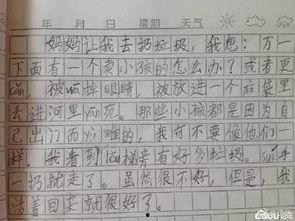 年 月 日 星期 天气
妈妈让我去扔垃圾,我想:万一
下面有一个卖小孩的怎么办?或者更
cǎn,被挖掉眼睛,被放进一个麻袋里
丢进河里 死。那些小孩都是因为自
己出门而 难的,我可不要像他们一
样。我看到lóu梯旁有好多垃圾。suí手
一扔就走了。虽然很不好,但是,我
活着回是就很好了。